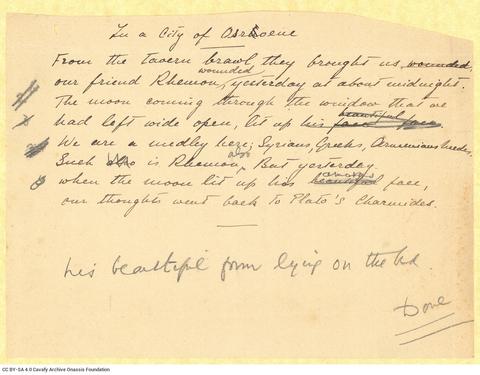 In a City of Osrkoene
From the tavern brawl, they brought us wounded,
wounded
our friend Rhemon, yesterday at about midnight.
The moon coming through the window that we
beautiful
had left wide open, lit up his face face.
We are a medley here; Syrians, Greeks, Armenians, Medes.
also
Such also is Rhemon. But yesterday
amorous
when the moon lit up his beautiful face,
our thoughts went back to Plato's Charmides.
his beautiful form lying on the bed.
Done
CC BY-SA 4.0 Cavafy Archive Onassis Foundation